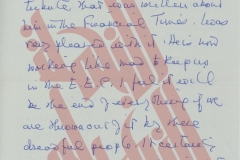 tribute that was written about
him in the Financial Times. I was
very pleased with it. He is now
working like mad to keep us
in the E.E.C. I feel it will
be the end of everything if we
are thrown out of it by these
dreadful people. I certainly